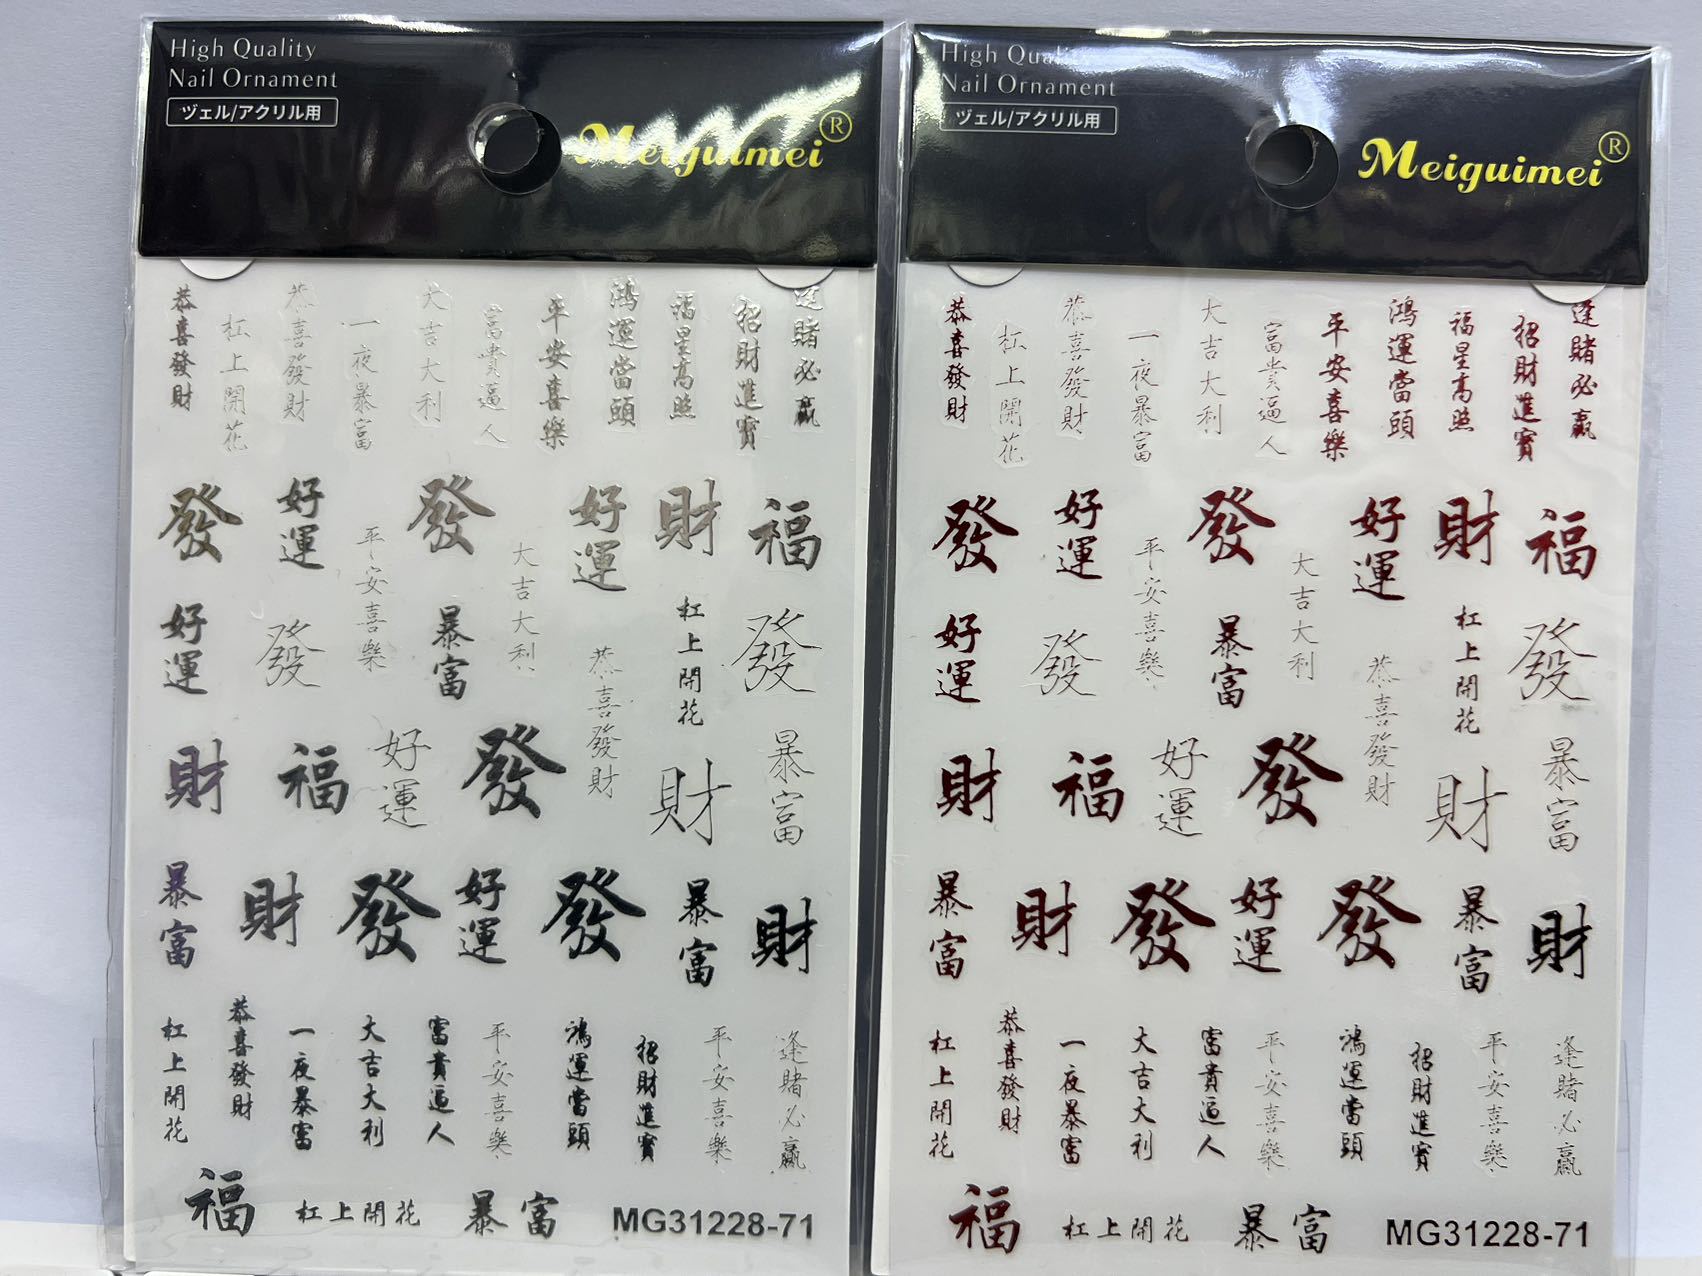 High Quality
Nail Ornament
ヅェル/アクリル用
Meiguimei®
恭喜發財
杠上開花
恭喜發財
一夜暴富
大吉大利
富貴逼人
平安喜樂
鴻運當頭
福星高照
招財進寶
逢賭必贏
發
好運
發
好運
財
福
平安喜樂
大吉大利
好運
發
暴富
恭喜發財
杠上開花
發
財
福
好運
發
財
暴富
暴富
財
發
好運
發
暴富
財
杠上開花
恭喜發財
一夜暴富
大吉大利
富貴逼人
平安喜樂
鴻運當頭
招財進寶
平安喜樂
逢賭必贏
福
杠上開花
暴富
MG31228-71
High Quality
Nail Ornament
ヅェル/アクリル用
Meiguimei®
恭喜發財
杠上開花
恭喜發財
一夜暴富
大吉大利
富貴逼人
平安喜樂
鴻運當頭
福星高照
招財進寶
逢賭必贏
發
好運
發
好運
財
福
平安喜樂
大吉大利
好運
發
暴富
恭喜發財
杠上開花
發
財
福
好運
發
財
暴富
暴富
財
發
好運
發
暴富
財
杠上開花
恭喜發財
一夜暴富
大吉大利
富貴逼人
平安喜樂
鴻運當頭
招財進寶
平安喜樂
逢賭必贏
福
杠上開花
暴富
MG31228-71